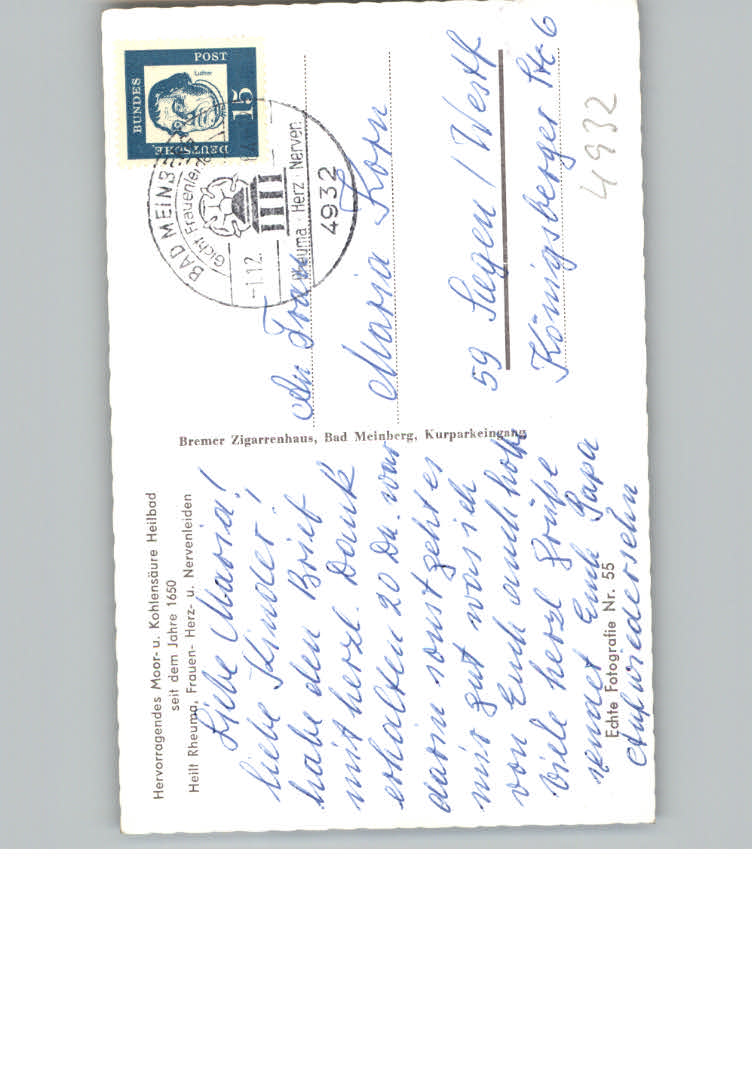 Hervorragendes Moor- u. Kohlensäure Heilbad
seit dem Jahre 1650
Heilt Rheuma, Frauen- Herz- u. Nervenleiden
Liebe Maria!
liebe Kinder!
habe den Brief
mit herzl. Dank
erhalten 20 Dm. war
darin sonst geht es
mir gut was ich
von Euch auch hoffe
Viele herzl Grüße
sendet Euch Papa
Aufwiedersehn
Echte Fotografie Nr. 55
Bremer Zigarrenhaus, Bad Meinberg, Kurparkeingang
DEUTSCHE
BUNDES
POST
Luther
15
BAD MEINB
Gicht Frauenlei
-1.12.
Rheuma · Herz · Nerven
4932
An Frau
Maria Korn
59 Siegen / Westf
Königsberger Str 6
4932